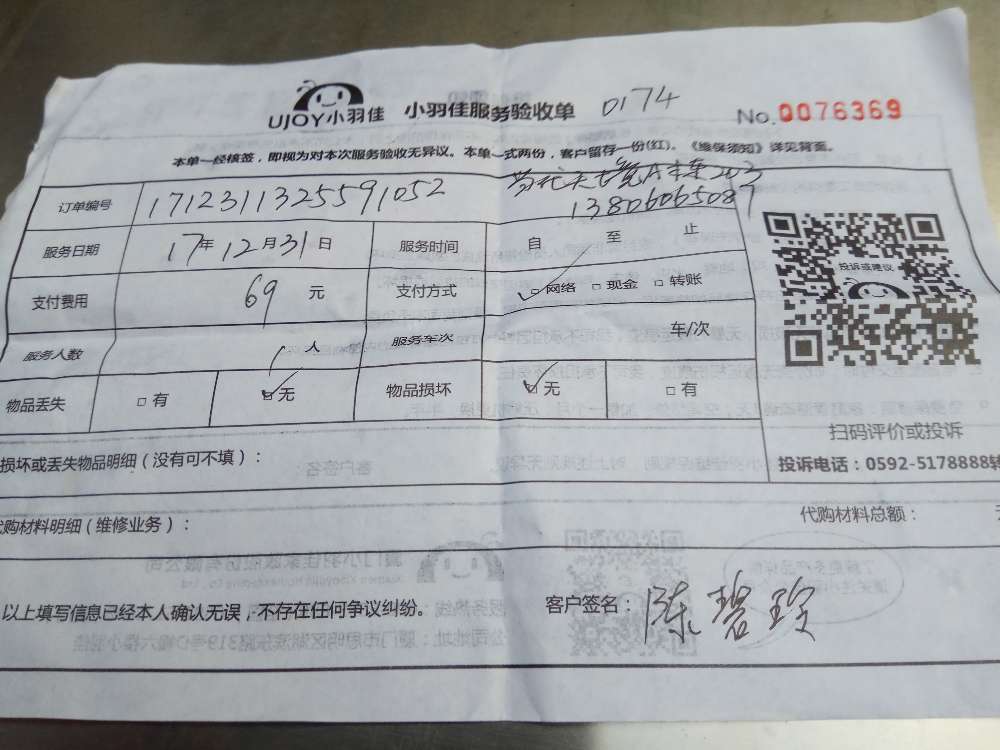 UJOY小羽佳 小羽佳服务验收单 0174 No.0076369
本单一经核签，即视为对本次服务验收无异议。本单一式两份，客户留存一份(红)。《维保须知》详见背面。
A栋203
订单编号 1712311325591052 13806065089
服务日期 17年12月31日 服务时间 自 至 止
支付费用 69 元 支付方式 ✓□网络 □现金 □转账
服务人数 1人 服务车次 车/次
物品丢失 □有 ☑无 物品损坏 ☑无 □有
投诉或建议
扫码评价或投诉
投诉电话：0592-5178888转
损坏或丢失物品明细（没有可不填）：
代购材料明细（维修业务）： 代购材料总额：
以上填写信息已经本人确认无误，不存在任何争议纠纷。 客户签名：陈碧玲